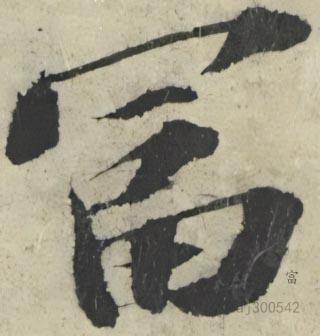 富
富
aj300542